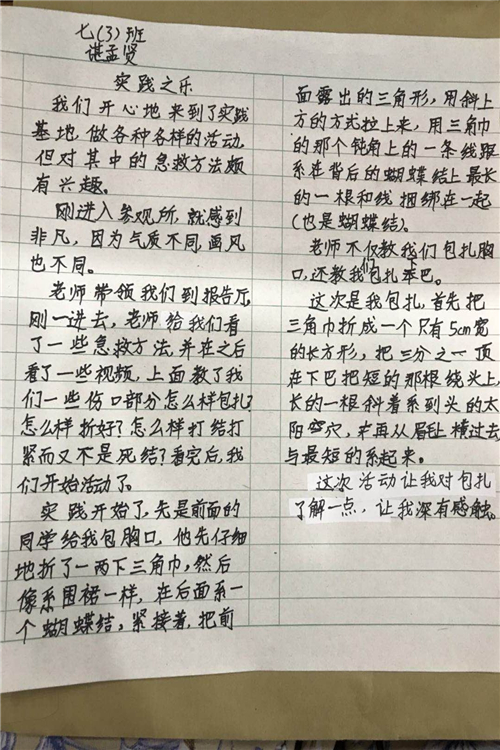 七(3)班
谌孟贤
实践之乐
我们开心地来到了实践
基地,做各种各样的活动,
但对其中的急救方法颇
有兴趣。
刚进入参观所,就感到
非凡,因为气质不同,画风
也不同。
老师带领我们到报告厅,
刚一进去,老师给我们看
了一些急救方法,并在之后
看了一些视频,上面教了我
们一些伤口部分怎么样包扎?
怎么样折好?怎么样打结打
紧而又不是死结?看完后,我
们开始活动了。
实践开始了,先是前面的
同学给我包胸口,他先仔细
地折了一两下三角巾,然后
像系围裙一样,在后面系一
个蝴蝶结,紧接着,把前
面露出的三角形,用斜上
方的方式拉上来,用三角巾
的那个钝角上的一条线跟
系在背后的蝴蝶结上最长
的一根和线捆绑在一起
(也是蝴蝶结)。
老师不仅教我们包扎胸
口,还教我们包扎下巴。
这次是我包扎,首先把
三角巾折成一个只有5cm宽
的长方形,把三分之一顶
在下巴把短的那根绕头上,
长的一根斜着系到头的太
阳穴,再从眉毛横过去
与最短的系起来。
这次活动让我对包扎
了解一点,让我深有感触。